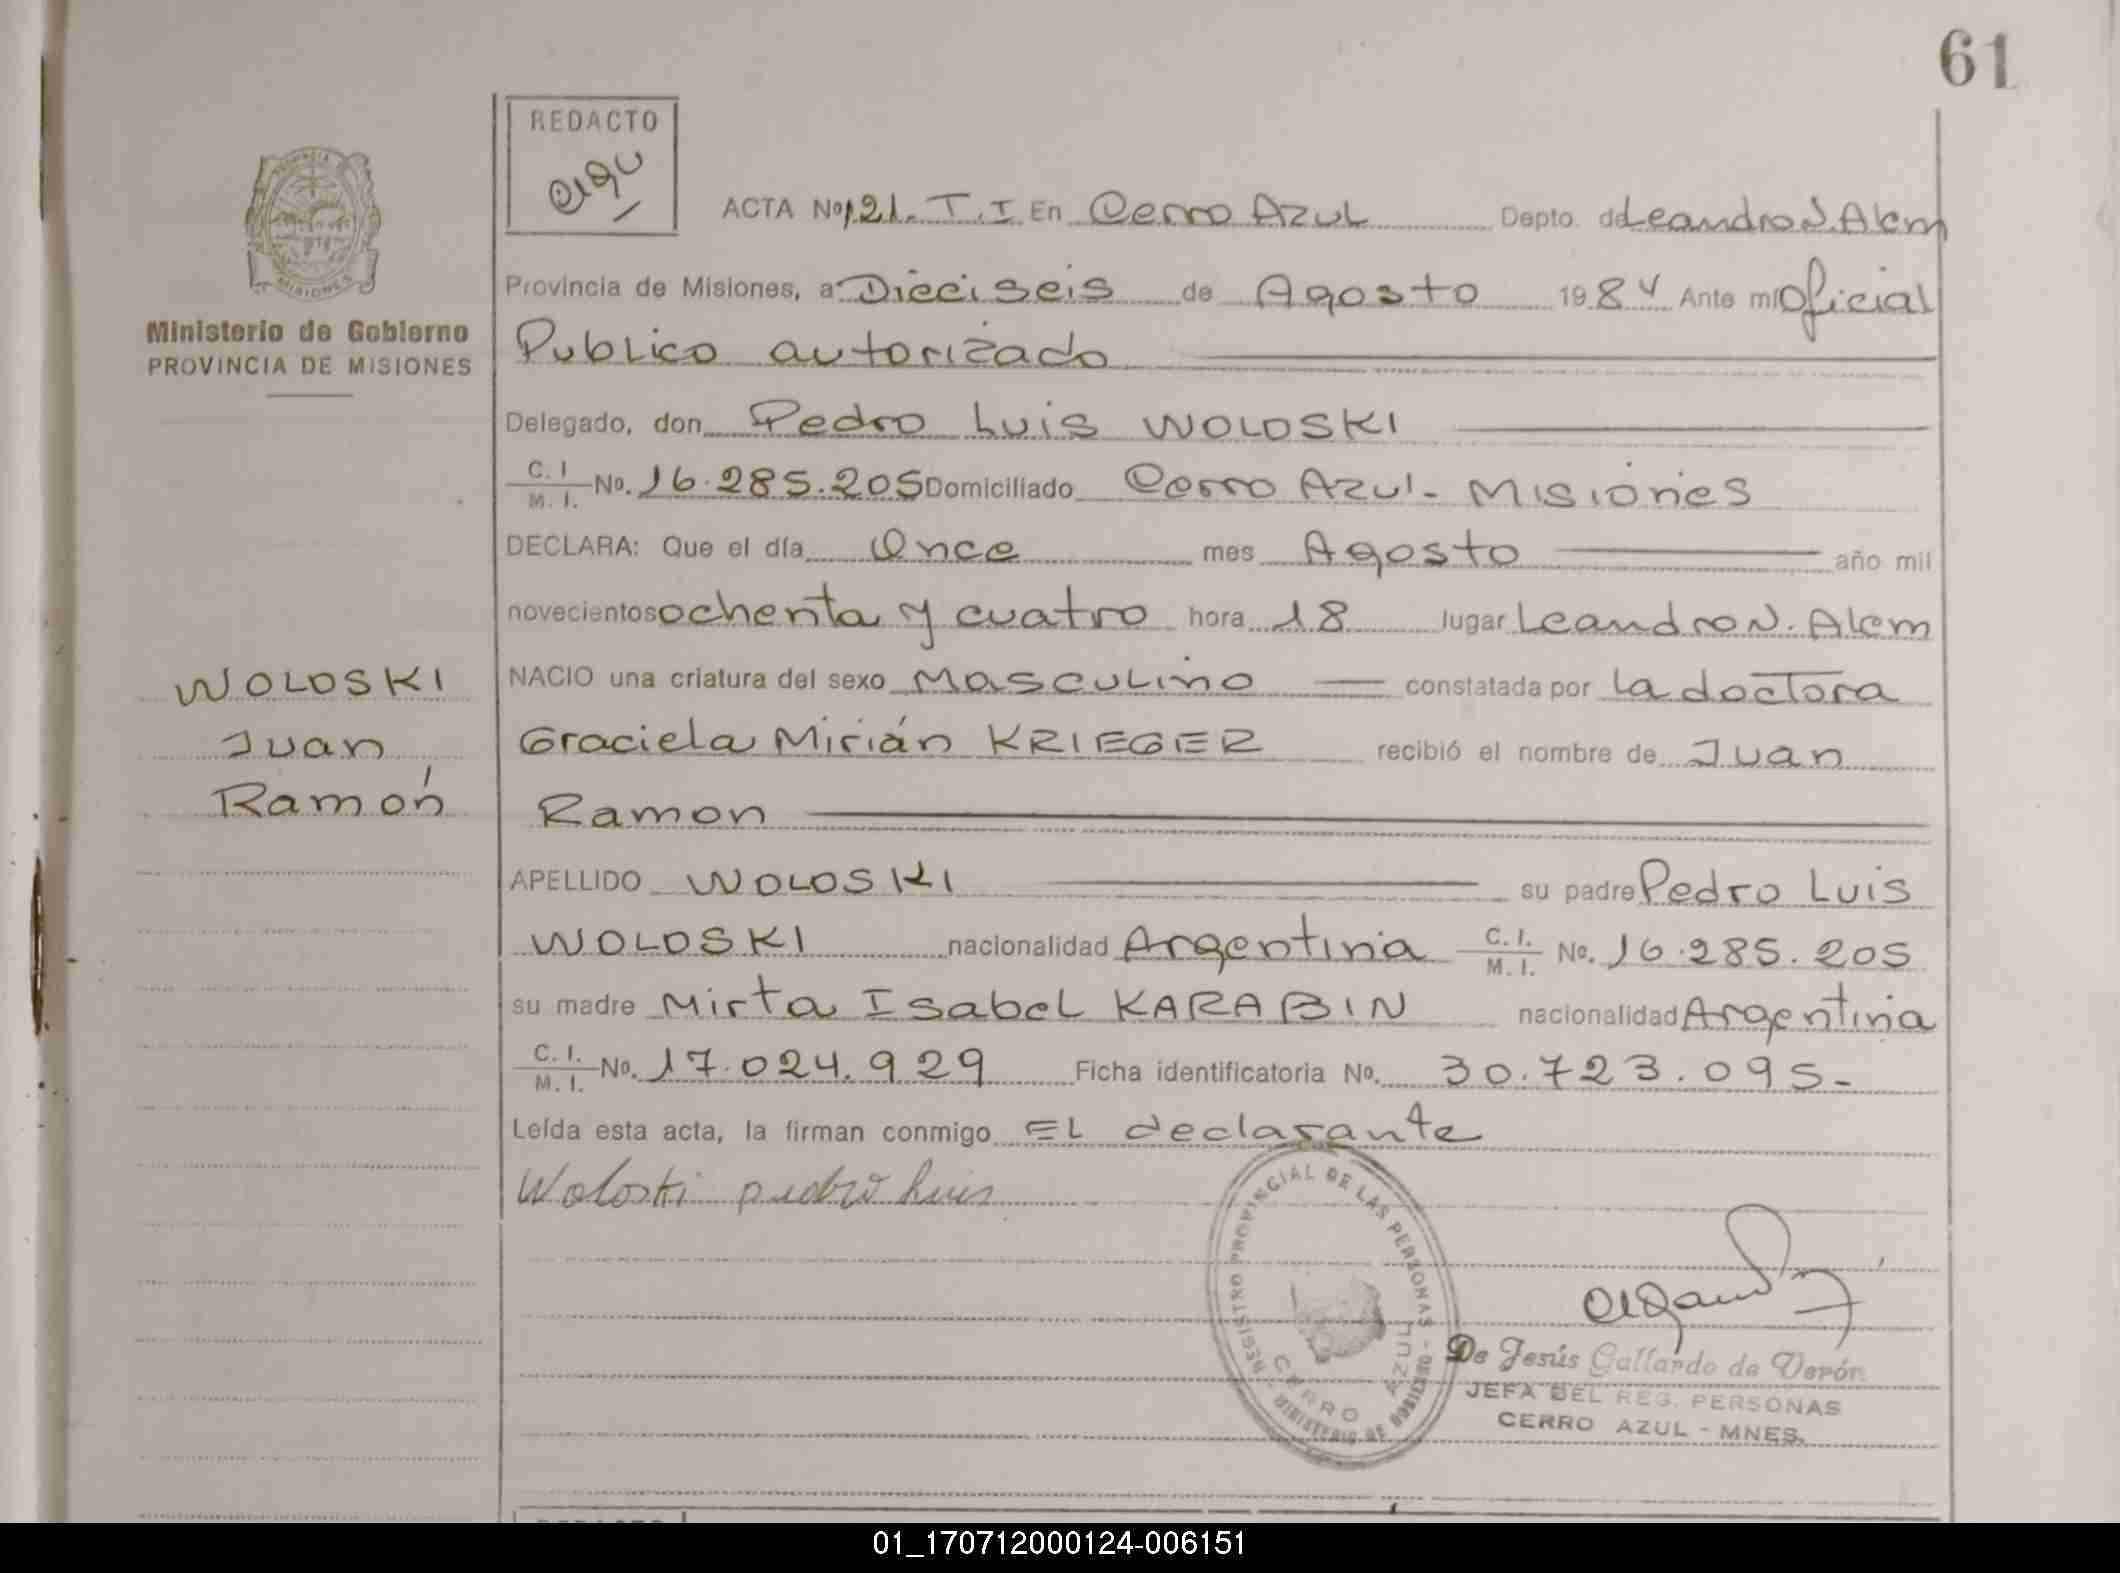 61
REDACTO
ACTA No 121. T.I En Cerro Azul Depto. de Leandro N. Alem
Provincia de Misiones, a Dieciseis de Agosto 1984 Ante mi Oficial
Publico autorizado
Ministerio de Gobierno
PROVINCIA DE MISIONES
Delegado, don Pedro Luis WOLOSKI
C. I. M. I. No. 16.285.205 Domiciliado Cerro Azul - Misiones
DECLARA: Que el día Once mes Agosto año mil
novecientos ochenta y cuatro hora 18 lugar Leandro N. Alem
NACIO una criatura del sexo Masculino constatada por la doctora
Graciela Mirián KRIEGER recibió el nombre de Juan
Ramon
WOLOSKI
Juan
Ramón
APELLIDO WOLOSKI su padre Pedro Luis
WOLOSKI nacionalidad Argentina C. I. M. I. No. 16.285.205
su madre Mirta Isabel KARABIN nacionalidad Argentina
C. I. M. I. No. 17.024.929 Ficha identificatoria No. 30.723.095-
Leída esta acta, la firman conmigo EL declarante
Woloski pedro luis
REGISTRO PROVINCIAL DE LAS PERSONAS - MINISTERIO DE GOBIERNO
CERRO AZUL
De Jesús Gallardo de Verón
JEFA DEL REG. PERSONAS
CERRO AZUL - MNES.
01_170712000124-006151